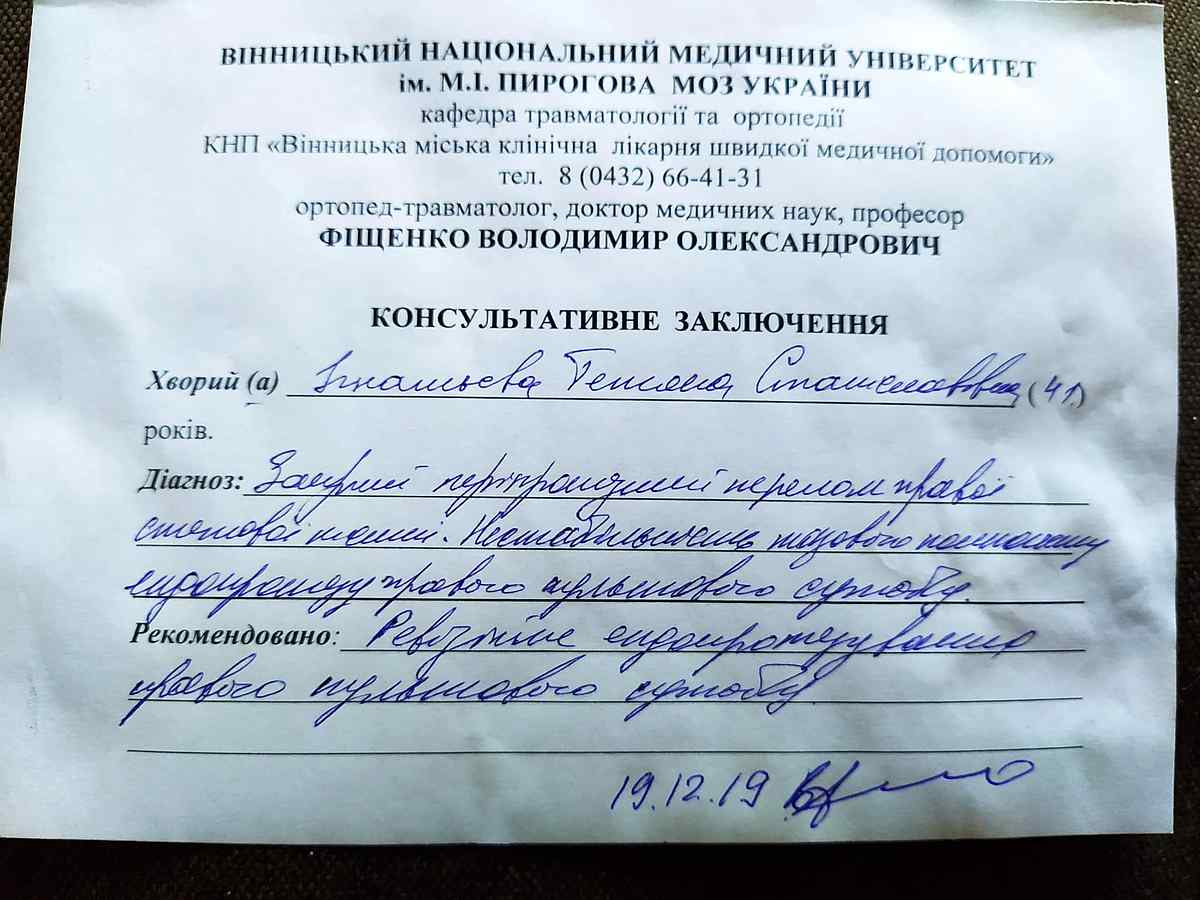 ВІННИЦЬКИЙ НАЦІОНАЛЬНИЙ МЕДИЧНИЙ УНІВЕРСИТЕТ
ім. М.І. ПИРОГОВА МОЗ УКРАЇНИ
кафедра травматології та ортопедії
КНП «Вінницька міська клінічна лікарня швидкої медичної допомоги»
тел. 8 (0432) 66-41-31
ортопед-травматолог, доктор медичних наук, професор
ФІЩЕНКО ВОЛОДИМИР ОЛЕКСАНДРОВИЧ
КОНСУЛЬТАТИВНЕ ЗАКЛЮЧЕННЯ
Хворий (а) Ігнатьєва Тетяна Станіславівна (41)
років.
Діагноз: Закритий перипротезний перелом правої
стегнової кістки. Нестабільність тазового компоненту
ендопротезу правого кульшового суглобу.
Рекомендовано: Ревізійне ендопротезування
правого кульшового суглобу
19.12.19